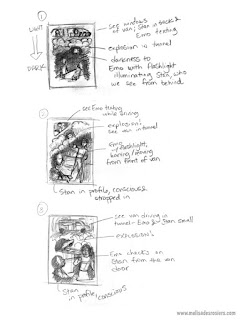 1
LIGHT
DARK
see windows
of van; Stan in back &
Emo texting
explosion in tunnel
darkness to
Emo with flashlight
illuminating Stan, who
we see from behind
2
see Emo texting
while driving
explosion;
see van in tunnel
Emo
w/flashlight,
from front of van
Stan in profile, conscious &
strapped in
3
see van driving in
tunnel - Emo & Stan small
explosion
Emo checks on
Stan from the van
door
Stan
in profile, conscious
www.melissdesrosiers.com